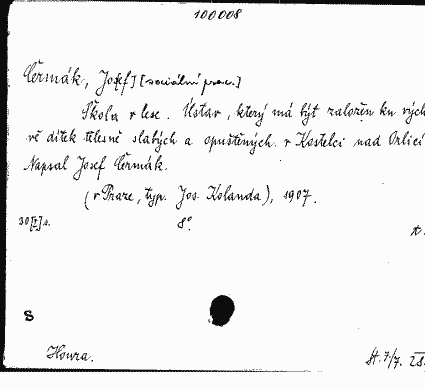 100008
Čermák, Josef] [sociální prac.]
Škola v lese. Ústav, který má být založen ku vých
vě dítek tělesně slabých a opuštěných. v Kostelci nad Orlicí
Napsal Josef Čermák.
(v Praze, typ. Jos. Kolanda), 1907.
30[I]s. 8°
S
St. 7/7.